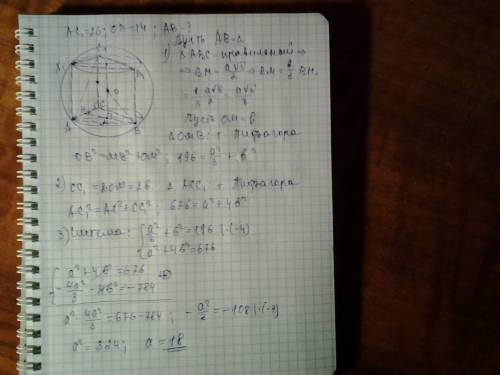 AC₁=26; OB=14; AB-?
Пусть AB=a
1) △ABC-правильный ⇒
⇒ BH = a√3/2 ⇒ BM = 2/3 BH =
= 2/3 · a√3/2 = a√3/3
Пусть OM=b
△OMB: т Пифагора
OB²=MB²+OM²; 196=a²/3+b²
2) CC₁=2OM=2b △ACC₁ т Пифагора
AC₁²=AC²+CC₁²; 676=a²+4b²
3) Система: { a²/3+b²=196 |·(-4)
a²+4b²=676
{ a²+4b²=676 ⊕
-4a²/3-4b²=-784
a²-4a²/3=676-784; -a²/3=-108 |·(-3)
a²=324; a=18
A₁
B₁
C
O
A
B